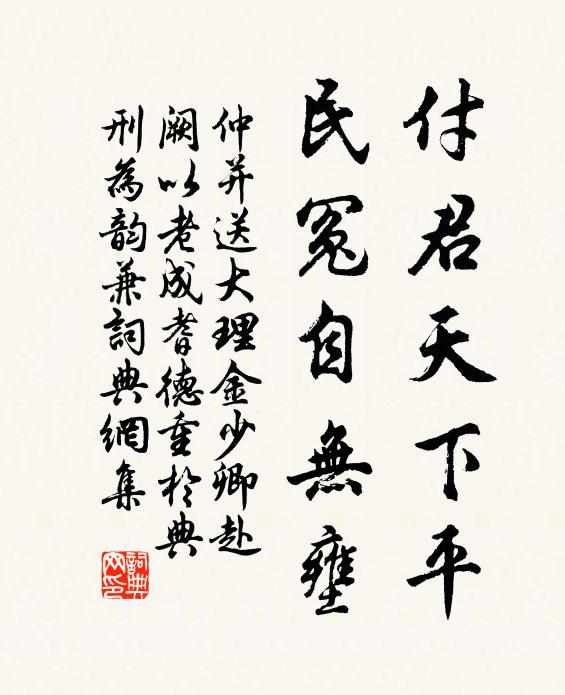 付君天下平
民冤自無壅
仲并送大理金少卿赴
闕以老成耆德重於典
刑為韵兼詞典網集
詞典網印